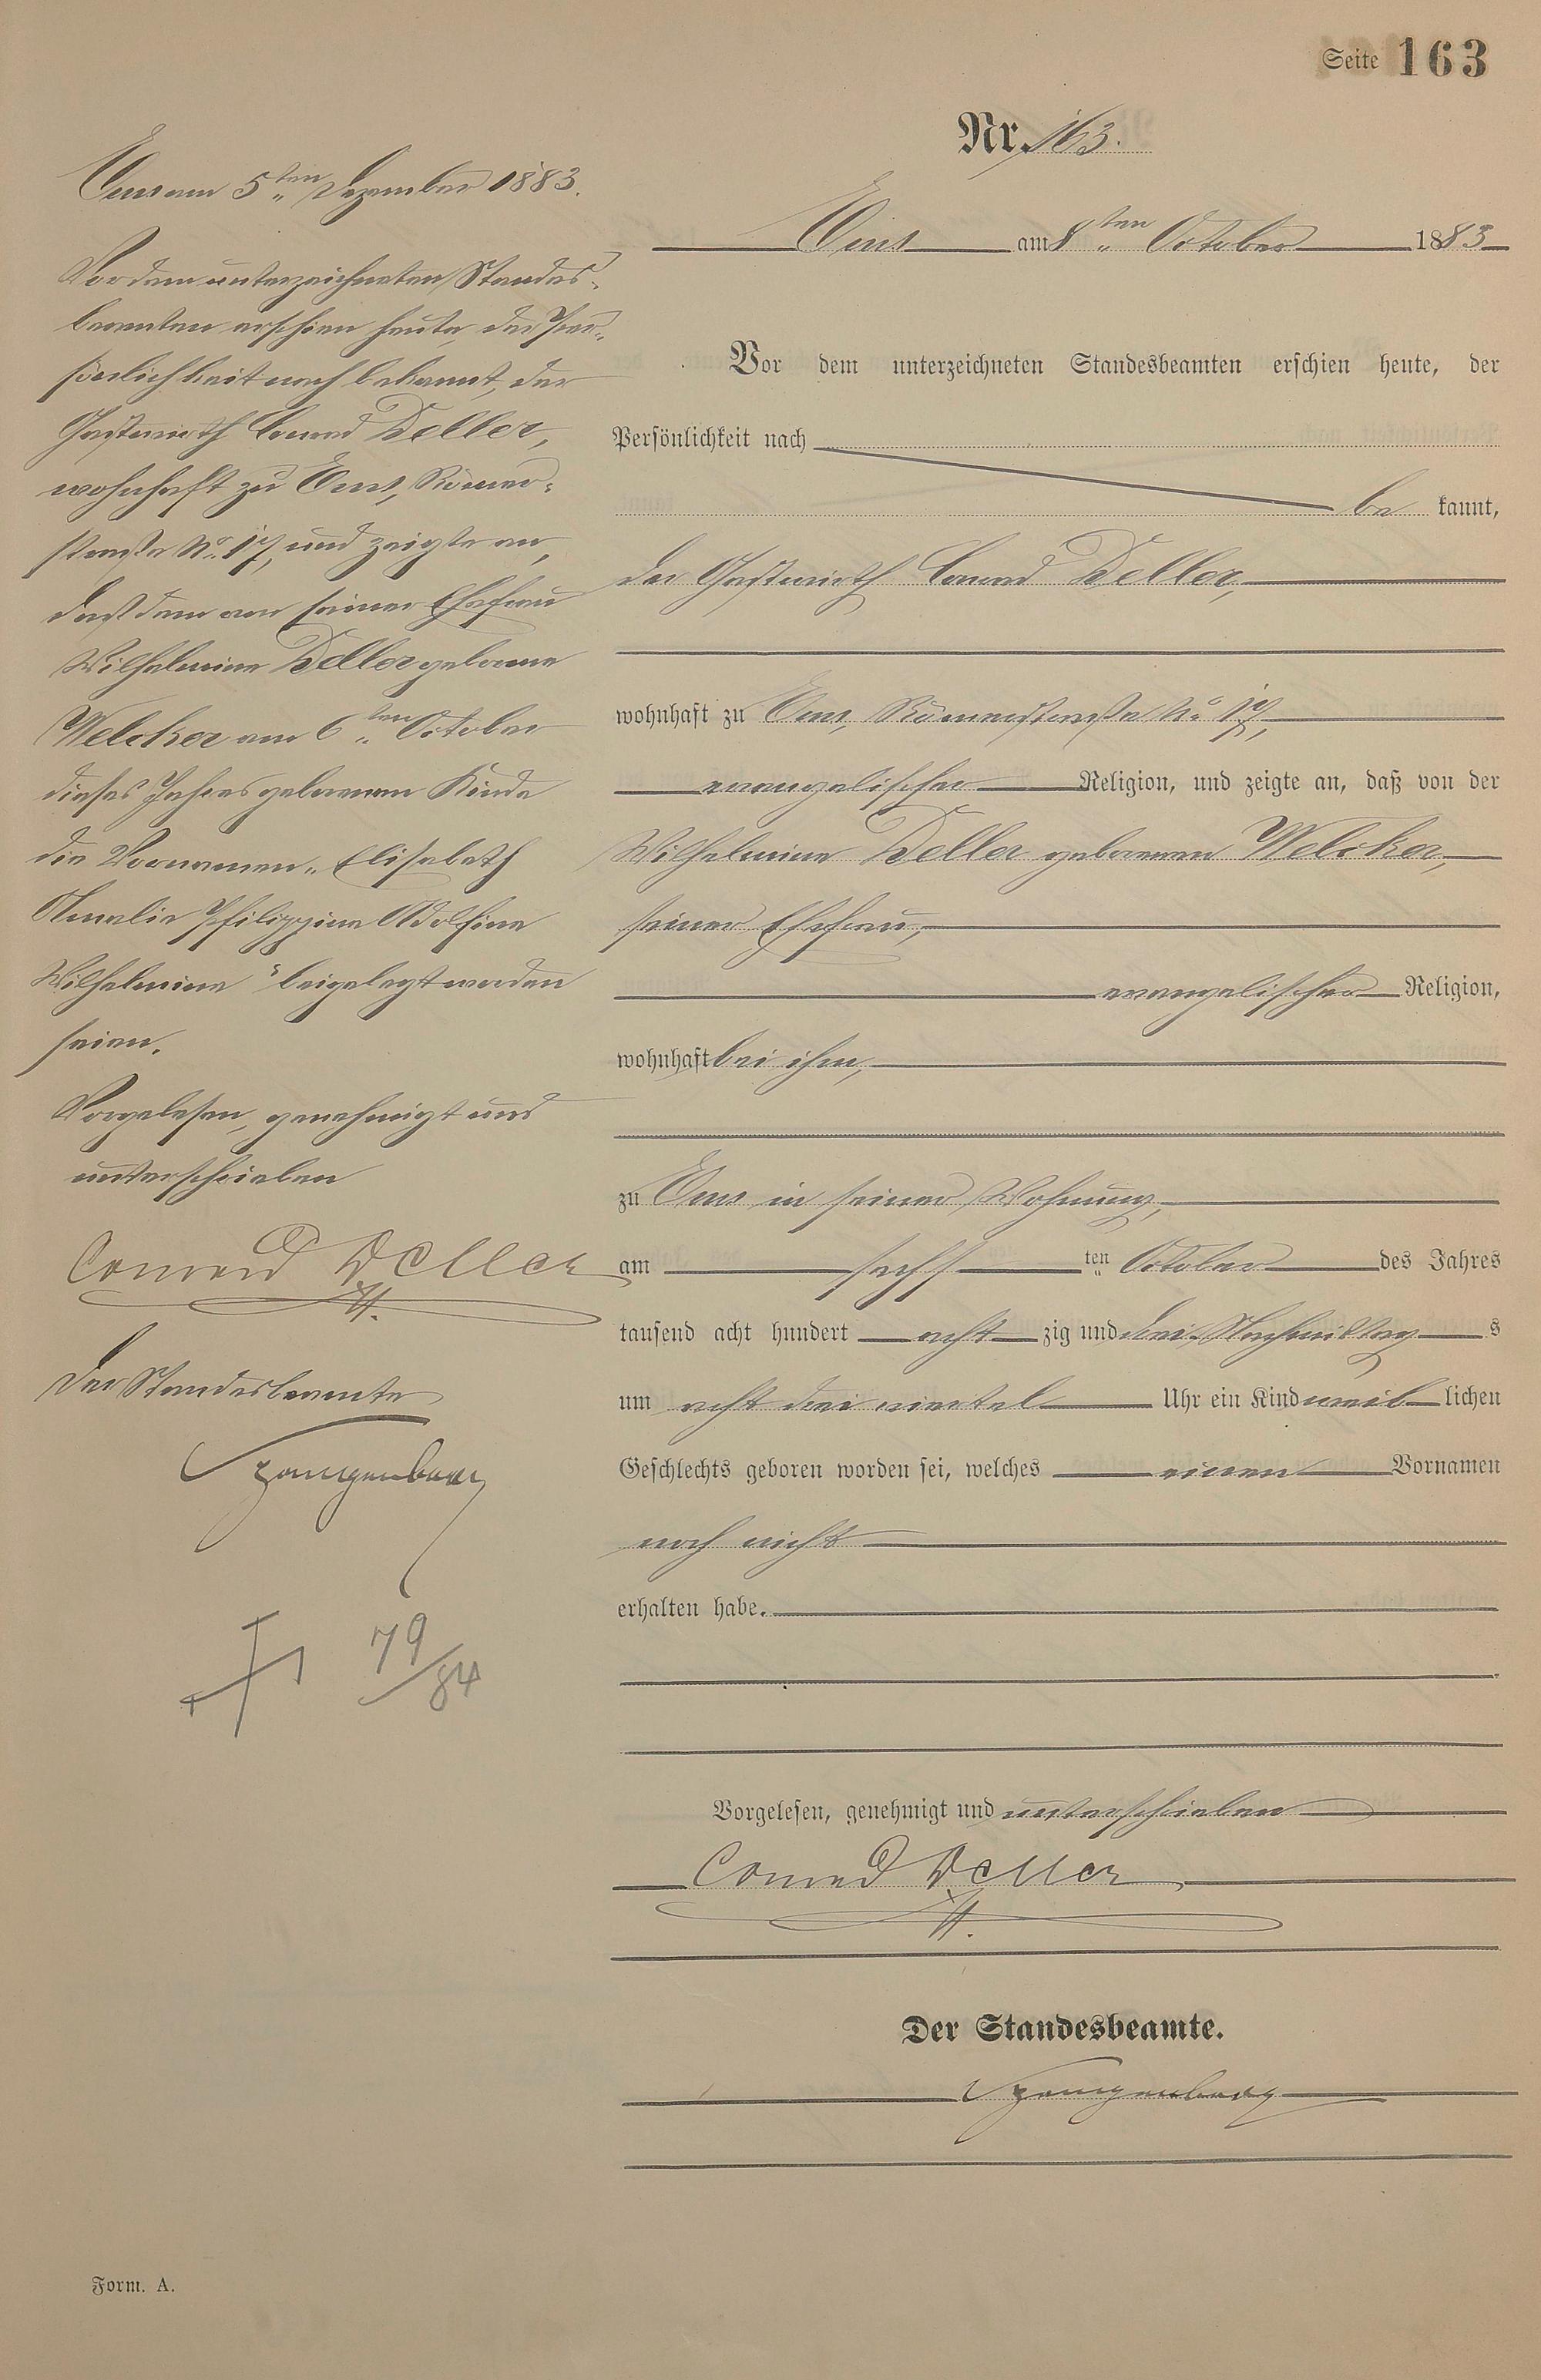 Seite 163
Nr. 163.
Ems am 8ten October 1883
Vor dem unterzeichneten Standesbeamten erschien heute, der
Persönlichkeit nach
be kannt,
der Gastwirth Conrad Deller,
wohnhaft zu Ems, Römerstraße No 17,
evangelischer Religion, und zeigte an, daß von der
Wilhelmine Deller geborenen Welcker,
seiner Ehefrau,
evangelischer Religion,
wohnhaft bei ihm,
zu Ems in seiner Wohnung,
am sechsten October des Jahres
tausend acht hundert acht zig und drei, Nachmittag s
um acht drei viertel Uhr ein Kind weib lichen
Geschlechts geboren worden sei, welches einen Vornamen
noch nicht
erhalten habe.
Vorgelesen, genehmigt und unterschrieben
Conrad Deller
Der Standesbeamte.
Ems am 5ten Dezember 1883.
Vor dem unterzeichneten Standes-
beamten erschien heute, der Per-
sönlichkeit nach bekannt, der
Gastwirth Conrad Deller,
wohnhaft zu Ems, Römer-
straße No. 17, und zeigte an,
daß dem von seiner Ehefrau
Wilhelmine Deller geborene
Welcker am 6ten October
dieses Jahres geborenen Kinde
die Vornamen „Elisabeth
Amalie Philippine Adolfine
Wilhelmine“ beigelegt worden
seien.
Vorgelesen, genehmigt und
unterschrieben
Conrad Deller
Der Standesbeamte
79/84
Form. A.